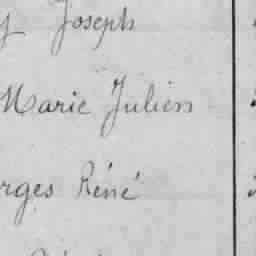 y Joseph
Marie Julien
rges Réné